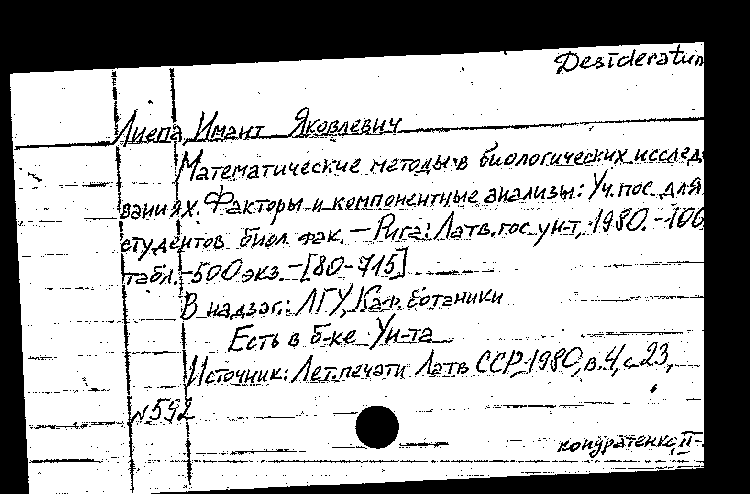 Desideratum
Лиепа, Имант Яковлевич
Математические методы в биологических исслед
ваниях. Факторы и компонентные анализы: Уч. пос. для
студентов биол. фак. – Рига: Латв. гос. ун-т, 1980. – 100
табл. – 500 экз. – [80-715]
В надзаг.: ЛГУ, Каф. ботаники
Есть в б-ке Ун-та
Источник: Лет. печати Латв ССР, 1980, в. 4, с 23,
№ 592
кондратенко, II-